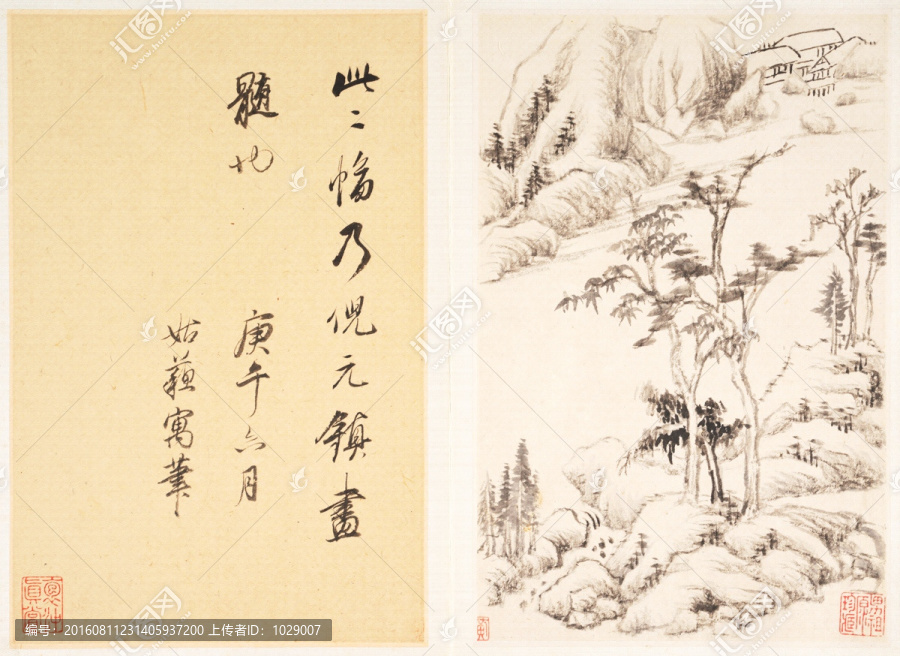 此二幅乃倪元鎮畫
髓也
庚午六月
姑蘓寓筆
編号:20160811231405937200 上传者ID:1029007
汇图网